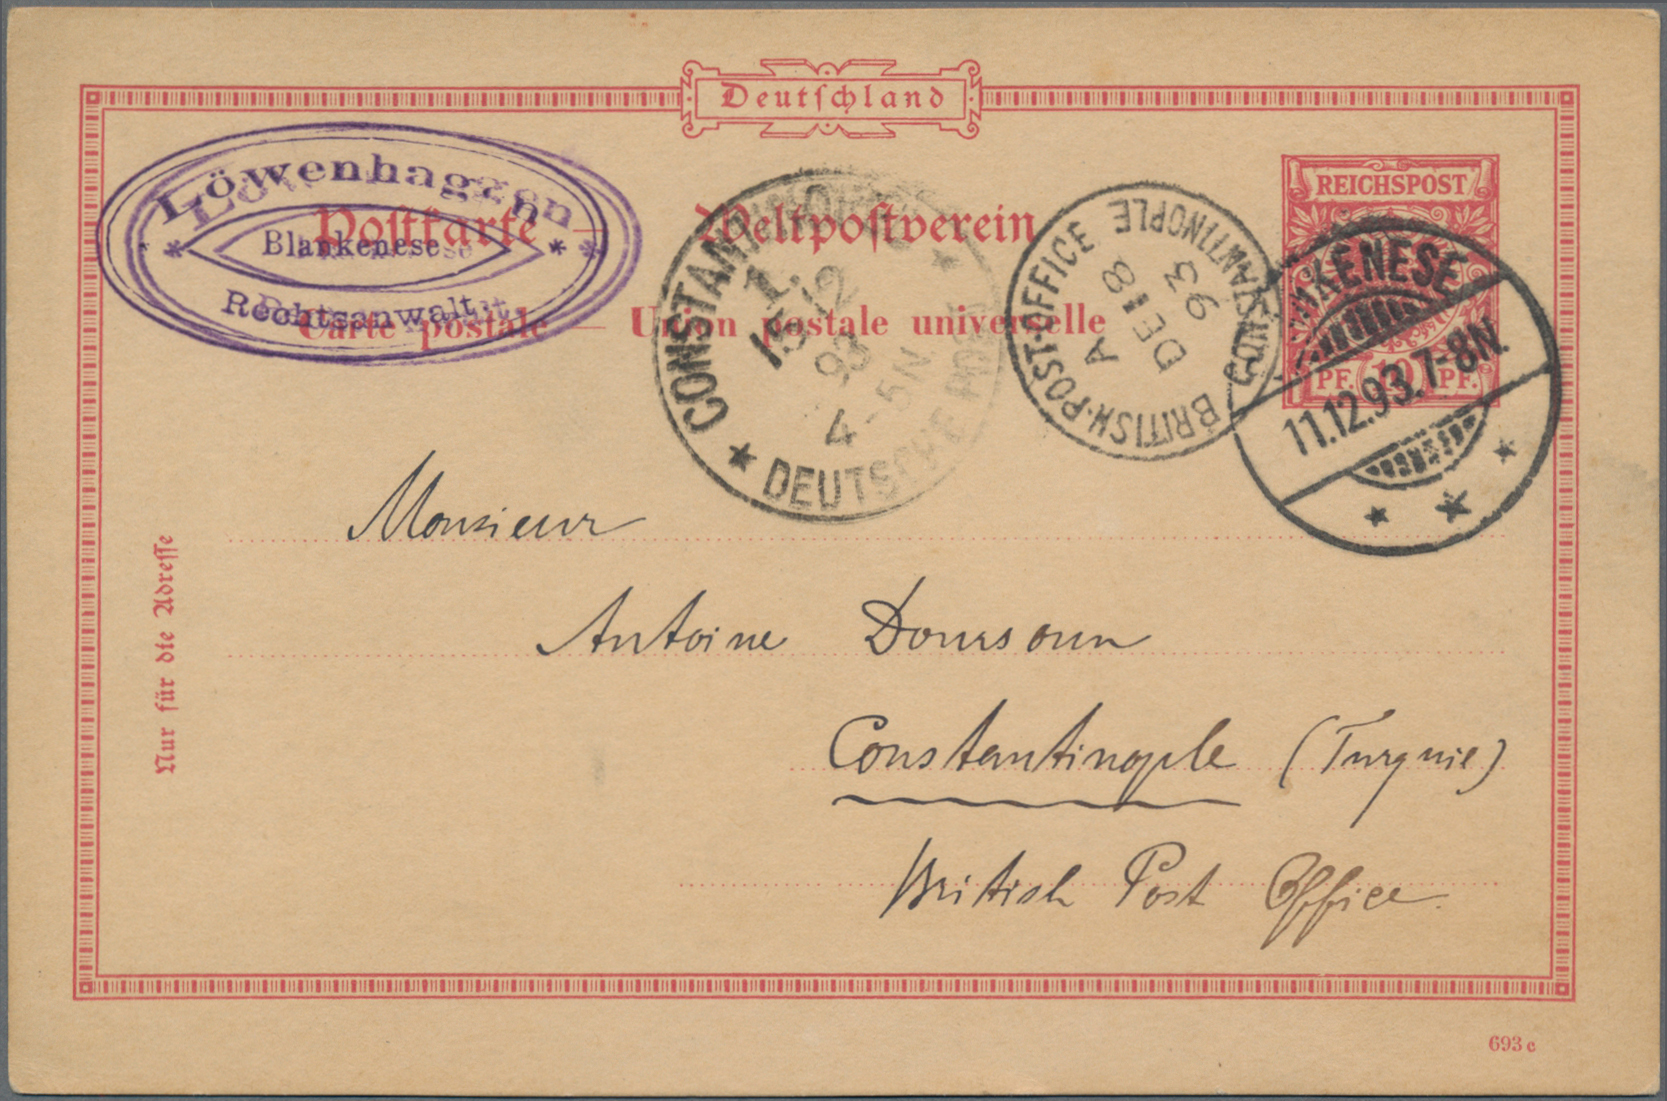 Deutschland
Löwenhagen
Blankenese
Rechtsanwalt
Postkarte — Weltpostverein
Carte postale — Union postale universelle
CONSTANTINOPEL
1.
15 12
93
4-5N
DEUTSCHE POST
BRITISH·POST·OFFICE CONSTANTINOPLE
A
DE 18
93
REICHSPOST
PF. 10 PF.
BLANKENESE
11.12.93.7-8N.
Monsieur
Antoine Doursoun
Constantinople (Turquie)
British Post Office
Nur für die Adresse
693 c